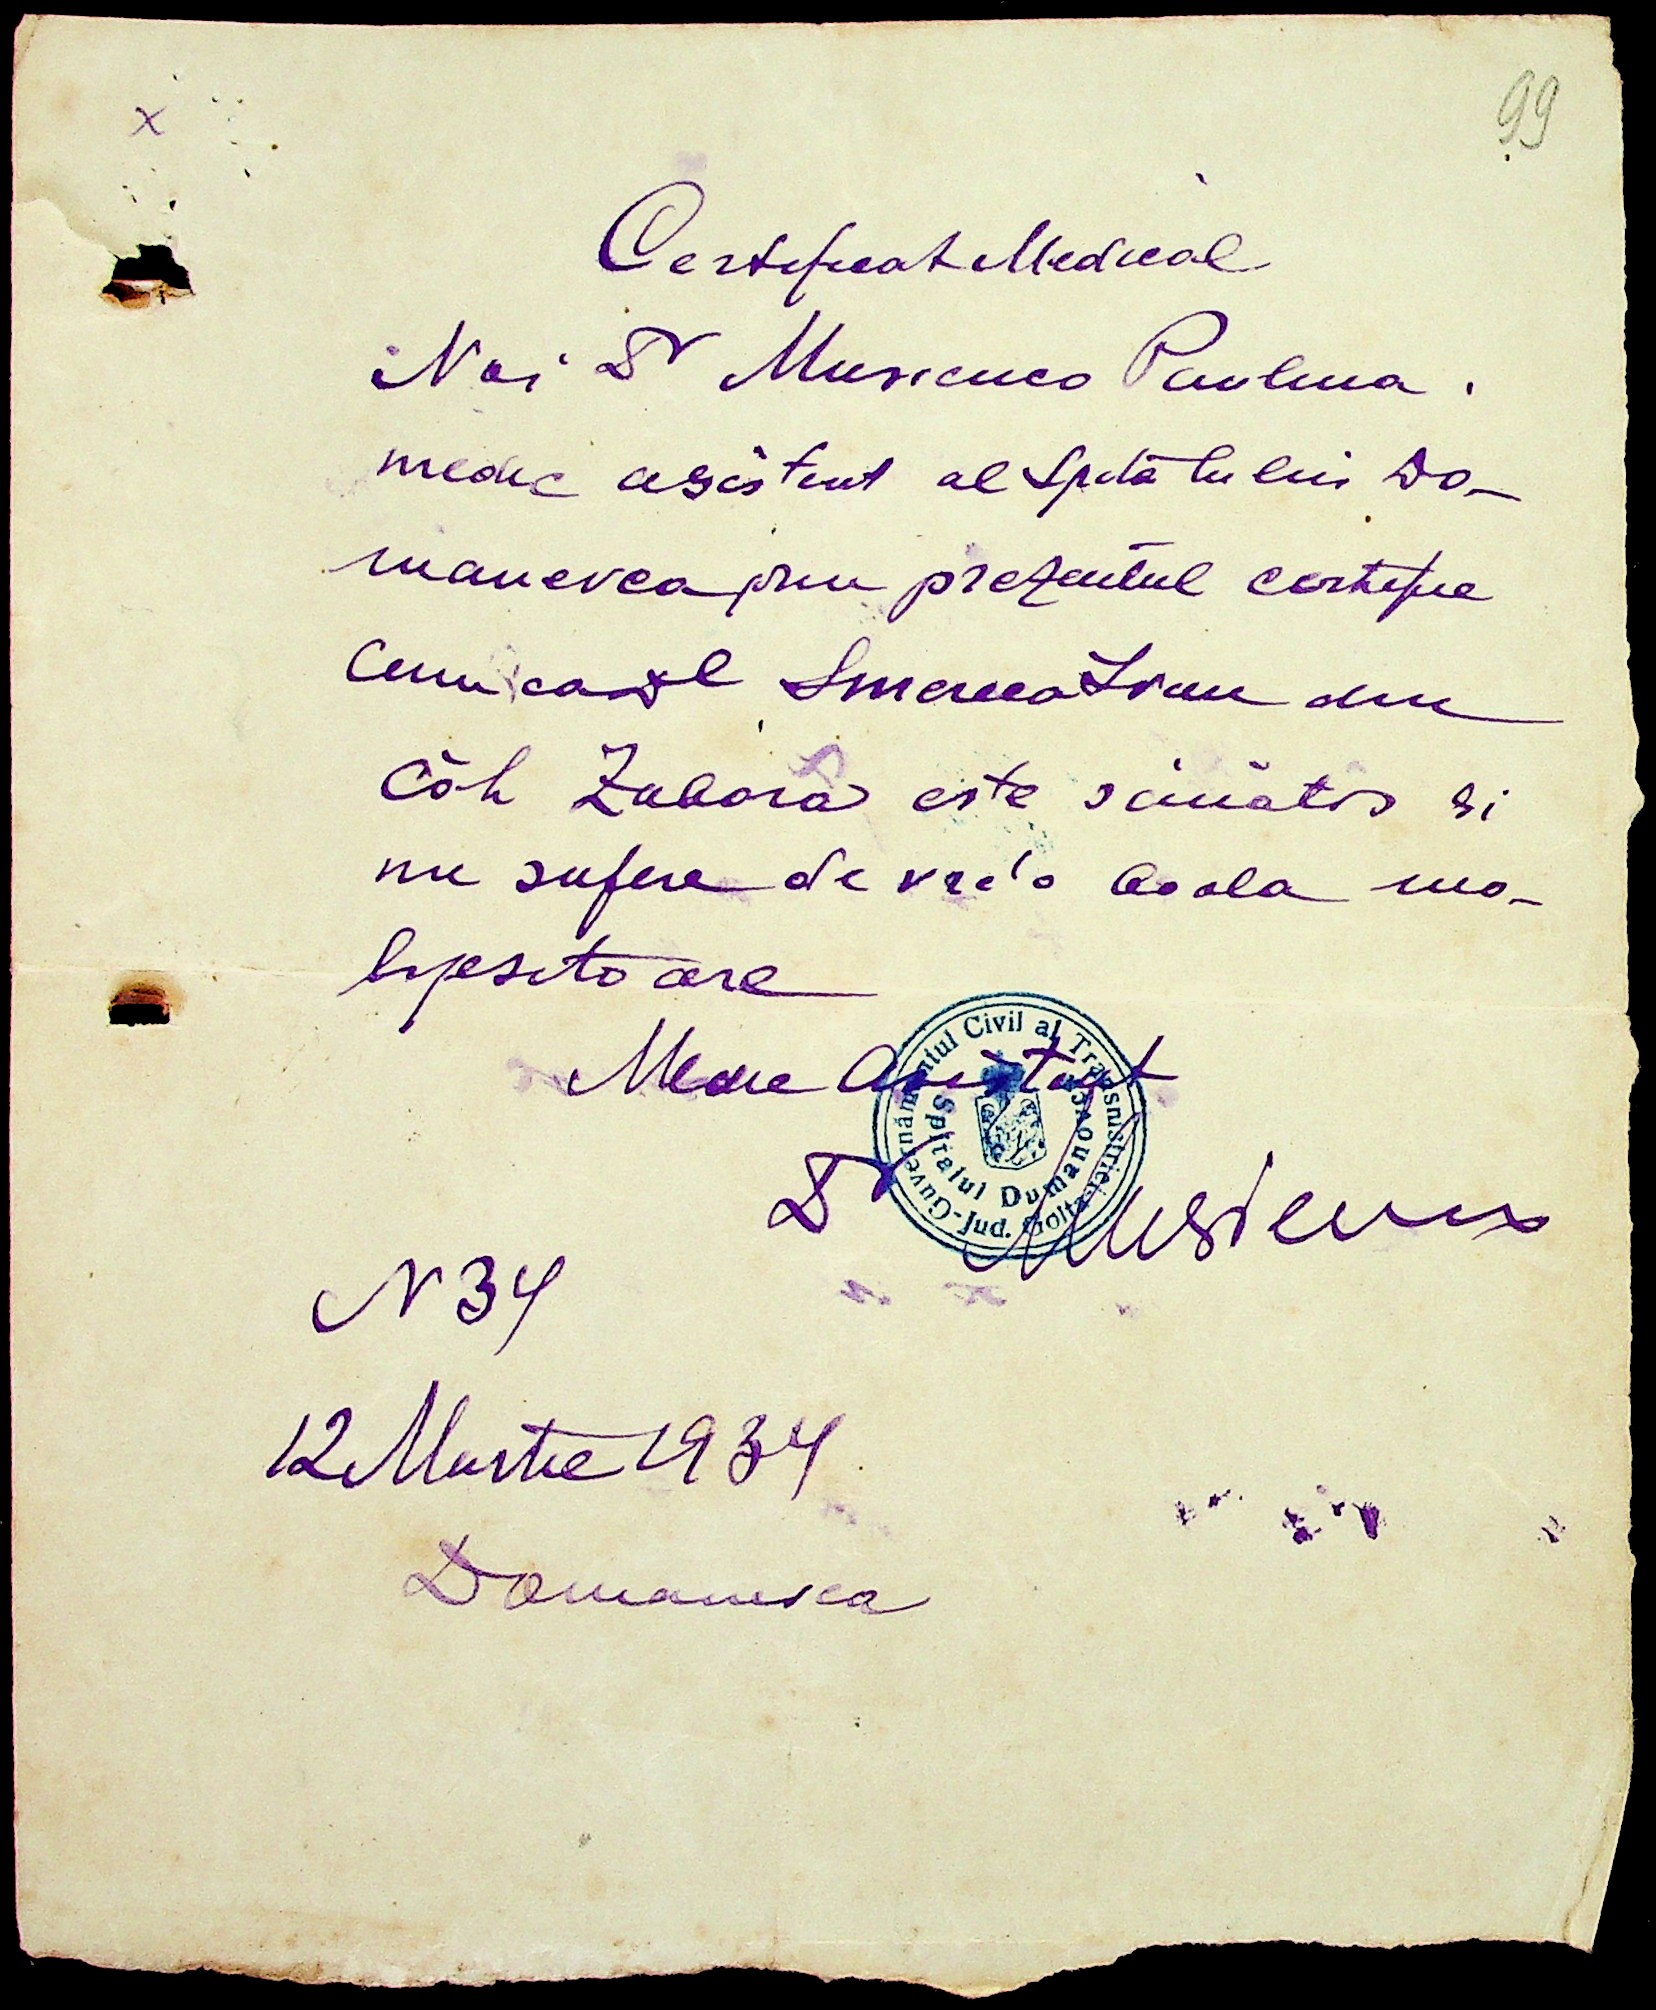 99
x
Certificat Medical
Noi Dr Musienco Paulina.
medic asistent al Spitalului Do-
manevca prin prezentul certific
cum ca dl Smerica Ivan din
Colh Zabora este sănătos si
nu sufera de vre'o boala mo-
lipsitoare
Medic Asistent
Guvernământul Civil al Transnistriei-Jud. Golta
Spitalul Dumanovca
Dr Musienco
N 34
12 Martie 1934
Domanevca